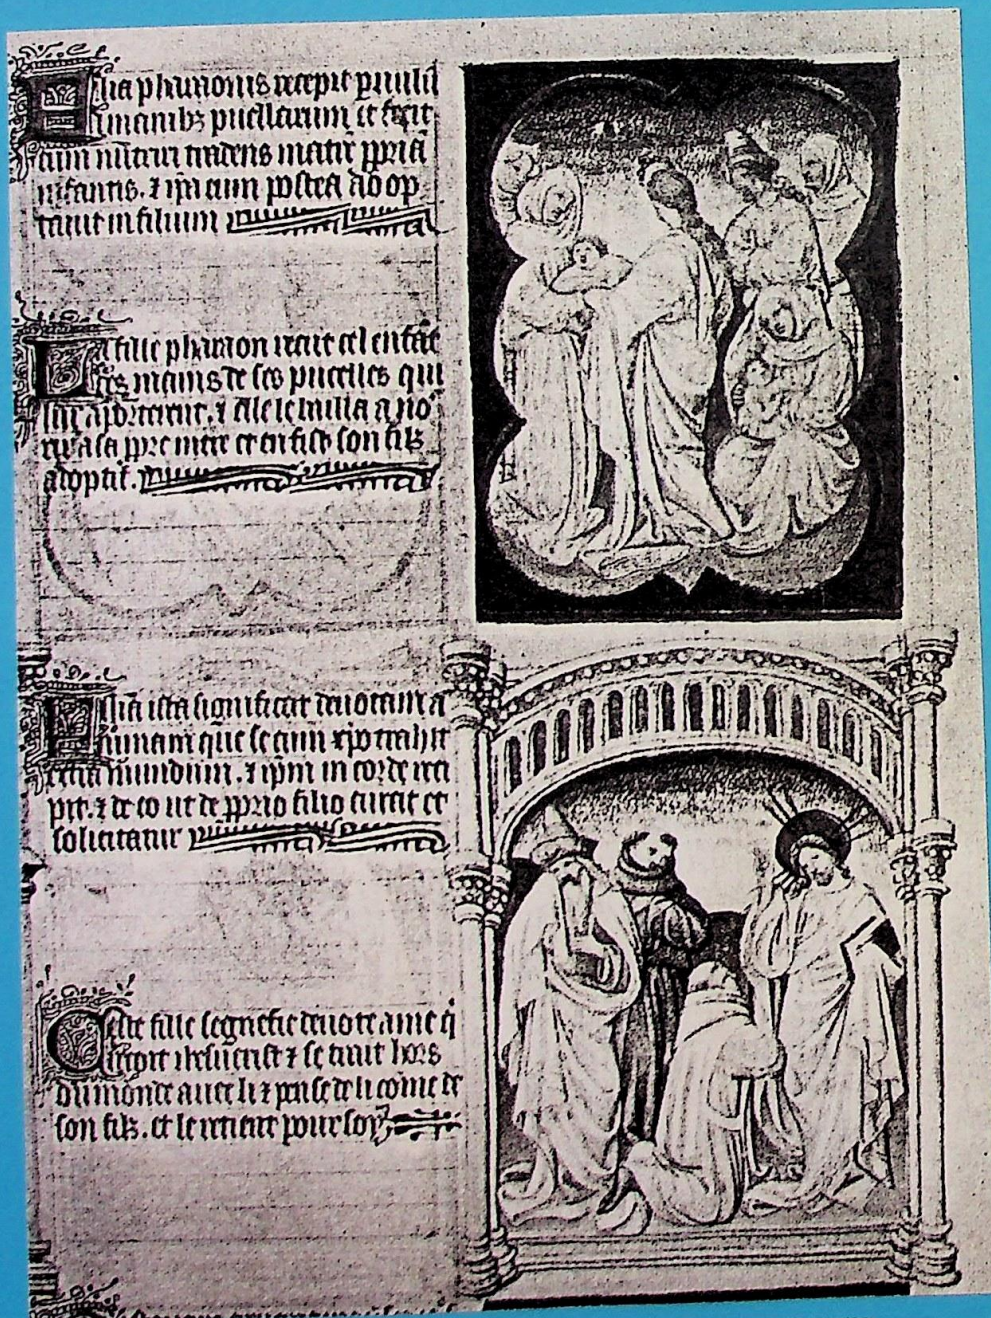 Filia pharaonis recepit puulū
i manibꝫ puellarum et fecit
eum nutriri tradens matri ꝓpria
infantis. ⁊ ip̄m eum postea ad op
tauit in filium
La fille pharaon recut cel enfāt
des mains de ses pucelles qui
li apporterent. ⁊ elle le bailla a no
rir a sa ꝓpre mere et en fist son fils
adoptif.
Filia ista significat deuotam a
nimam que sequitur xp̄o trahit
extra mundum. ⁊ ip̄m in corde reci
pit. ⁊ de eo ut de ꝓprio filio curat et
sollicitatur
Ceste fille segnefie deuote ame q̄
recoit ihesucrist ⁊ se tient hors
du monde auec li ⁊ pense de li cōme de
son fils. et le retient pour soy